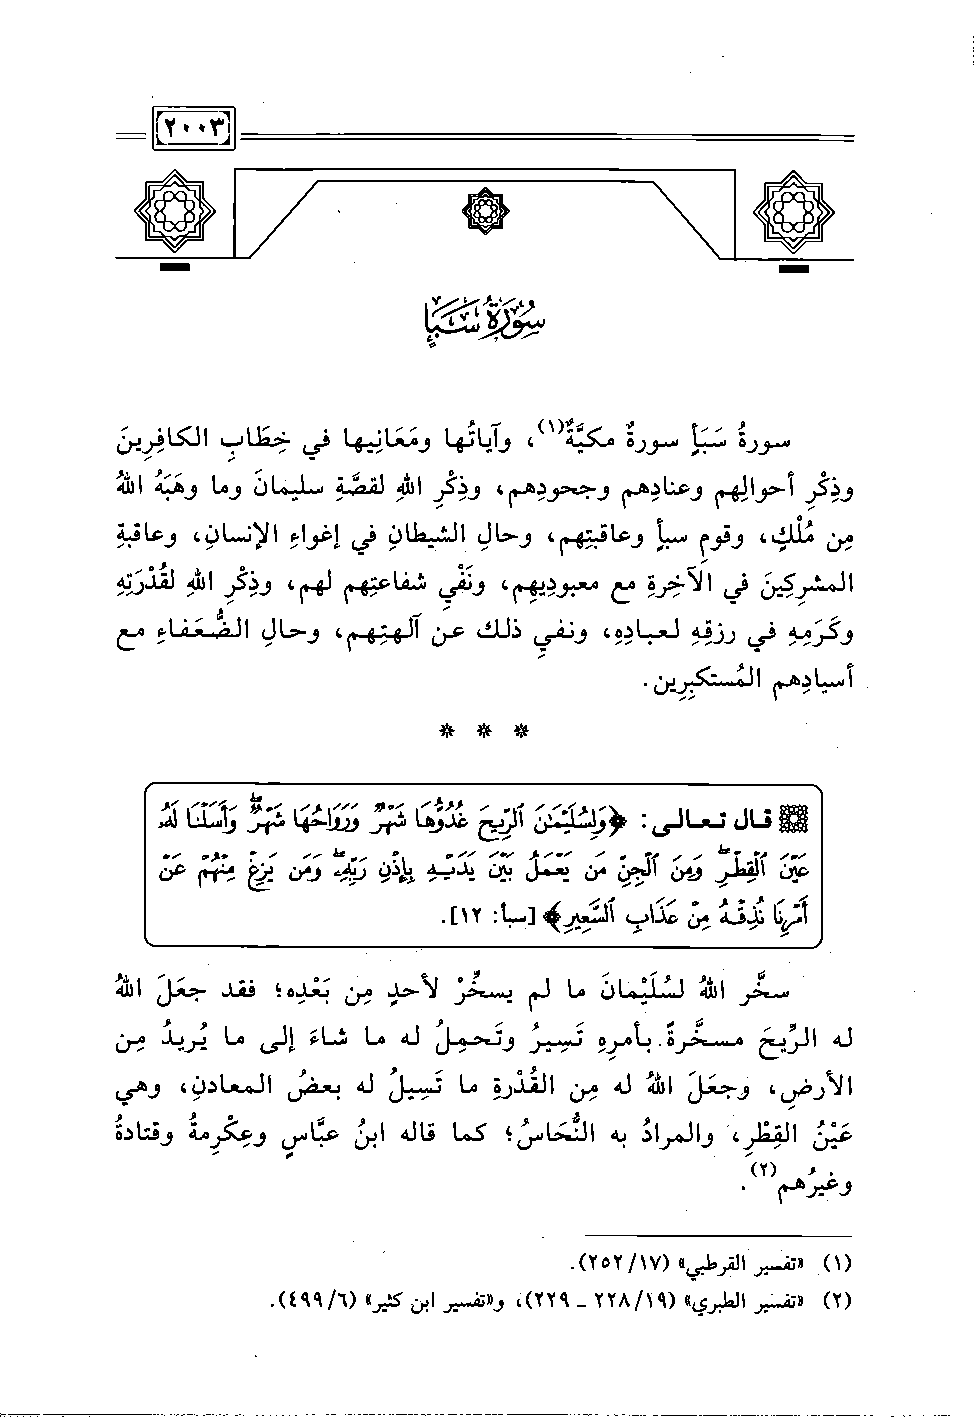 ٢٠٠٣
سُورَةُ سَبَإٍ
سورةُ سَبَأٍ سورةٌ مكيَّةٌ(١)، وآياتُها ومَعَانِيها في خِطَابِ الكافِرِينَ
وذِكْرِ أحوالِهم وعنادِهم وجحودِهم، وذِكْرِ اللهِ لقصَّةِ سليمانَ وما وهَبَهُ اللهُ
مِن مُلْكٍ، وقومِ سبأٍ وعاقبتِهم، وحالِ الشيطانِ في إغواءِ الإنسانِ، وعاقبةِ
المشرِكِينَ في الآخِرةِ مع معبودِيهِم، ونَفْيِ شفاعتِهم لهم، وذِكْرِ اللهِ لقُدْرَتِهِ
وكَرَمِهِ في رزقِهِ لعبادِهِ، ونفيِ ذلك عن آلهتِهم، وحالِ الضُّعَفاءِ مع
أسيادِهم المُستكبِرِين.
* * *
قال تعالى: ﴿وَلِسُلَيْمَٰنَ ٱلرِّيحَ غُدُوُّهَا شَهْرٌ وَرَوَاحُهَا شَهْرٌۖ وَأَسَلْنَا لَهُۥ
عَيْنَ ٱلْقِطْرِۖ وَمِنَ ٱلْجِنِّ مَن يَعْمَلُ بَيْنَ يَدَيْهِ بِإِذْنِ رَبِّهِۦۖ وَمَن يَزِغْ مِنْهُمْ عَنْ
أَمْرِنَا نُذِقْهُ مِنْ عَذَابِ ٱلسَّعِيرِ﴾ [سبأ: ١٢].
سخَّر اللهُ لسُلَيْمانَ ما لم يسخِّرْ لأحدٍ مِن بَعْدِه؛ فقد جعَلَ اللهُ
له الرِّيحَ مسخَّرةً بأمرِهِ تَسِيرُ وتَحمِلُ له ما شاءَ إلى ما يُريدُ مِن
الأرضِ، وجعَلَ اللهُ له مِن القُدْرةِ ما تَسِيلُ له بعضُ المعادنِ، وهي
عَيْنُ القِطْرِ، والمرادُ به النُّحَاسُ؛ كما قاله ابنُ عبَّاسٍ وعِكْرِمةُ وقتادةُ
وغيرُهم(٢).
(١) «تفسير القرطبي» (١٧/ ٢٥٢).
(٢) «تفسير الطبري» (١٩/ ٢٢٨ ـ ٢٢٩)، و«تفسير ابن كثير» (٦/ ٤٩٩).